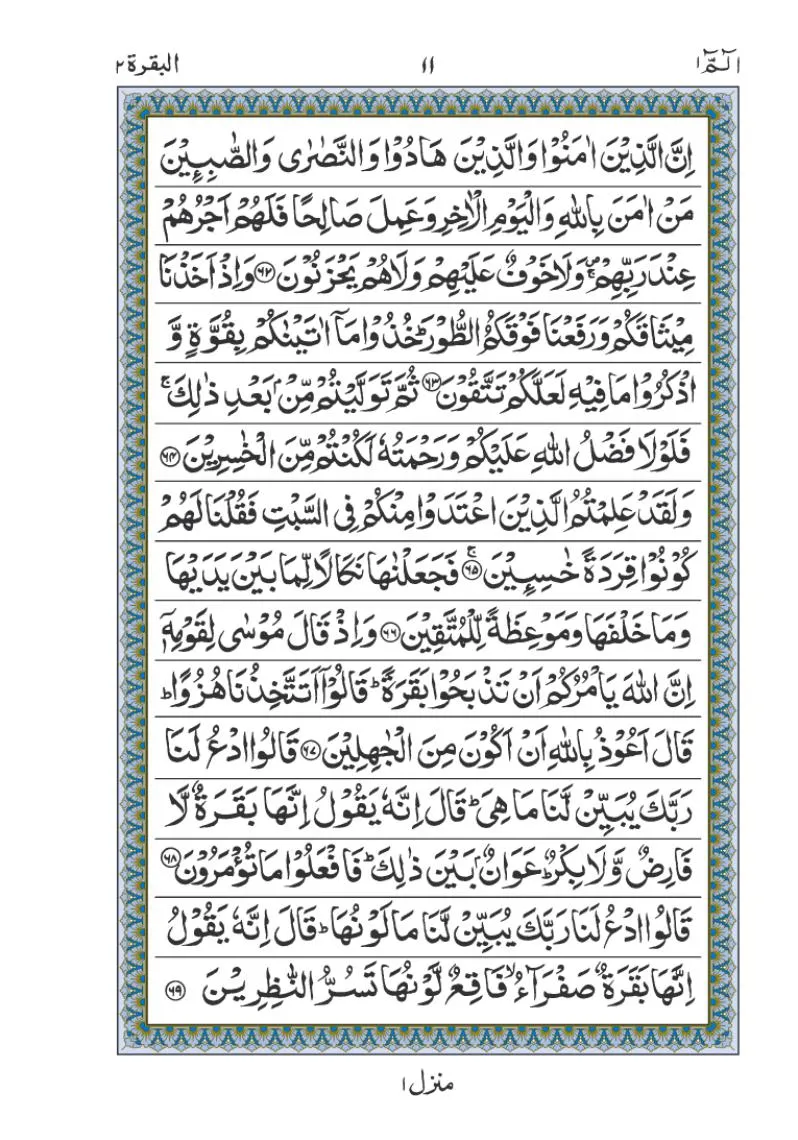 الٓمّٓ ۱ ۱۱ البقرة ۲
اِنَّ الَّذِیْنَ اٰمَنُوْا وَالَّذِیْنَ هَادُوْا وَالنَّصٰرٰی وَالصّٰبِـِٕیْنَ
مَنْ اٰمَنَ بِاللّٰهِ وَالْیَوْمِ الْاٰخِرِ وَعَمِلَ صَالِحًا فَلَهُمْ اَجْرُهُمْ
عِنْدَ رَبِّهِمْ ۪ۚ وَلَا خَوْفٌ عَلَیْهِمْ وَلَا هُمْ یَحْزَنُوْنَ ۶۲ وَاِذْ اَخَذْنَا
مِیْثَاقَكُمْ وَرَفَعْنَا فَوْقَكُمُ الطُّوْرَ ؕ خُذُوْا مَاۤ اٰتَیْنٰكُمْ بِقُوَّةٍ وَّ
اذْكُرُوْا مَا فِیْهِ لَعَلَّكُمْ تَتَّقُوْنَ ۶۳ ثُمَّ تَوَلَّیْتُمْ مِّنْۢ بَعْدِ ذٰلِكَ ۚ
فَلَوْلَا فَضْلُ اللّٰهِ عَلَیْكُمْ وَرَحْمَتُهٗ لَكُنْتُمْ مِّنَ الْخٰسِرِیْنَ ۶۴
وَلَقَدْ عَلِمْتُمُ الَّذِیْنَ اعْتَدَوْا مِنْكُمْ فِی السَّبْتِ فَقُلْنَا لَهُمْ
كُوْنُوْا قِرَدَةً خٰسِـِٕیْنَ ۚ ۶۵ فَجَعَلْنٰهَا نَكَالًا لِّمَا بَیْنَ یَدَیْهَا
وَمَا خَلْفَهَا وَمَوْعِظَةً لِّلْمُتَّقِیْنَ ۶۶ وَاِذْ قَالَ مُوْسٰی لِقَوْمِهٖۤ
اِنَّ اللّٰهَ یَاْمُرُكُمْ اَنْ تَذْبَحُوْا بَقَرَةً ؕ قَالُوْۤا اَتَتَّخِذُنَا هُزُوًا ؕ
قَالَ اَعُوْذُ بِاللّٰهِ اَنْ اَكُوْنَ مِنَ الْجٰهِلِیْنَ ۶۷ قَالُوا ادْعُ لَنَا
رَبَّكَ یُبَیِّنْ لَّنَا مَا هِیَ ؕ قَالَ اِنَّهٗ یَقُوْلُ اِنَّهَا بَقَرَةٌ لَّا
فَارِضٌ وَّلَا بِكْرٌ ؕ عَوَانٌۢ بَیْنَ ذٰلِكَ ؕ فَافْعَلُوْا مَا تُؤْمَرُوْنَ ۶۸
قَالُوا ادْعُ لَنَا رَبَّكَ یُبَیِّنْ لَّنَا مَا لَوْنُهَا ؕ قَالَ اِنَّهٗ یَقُوْلُ
اِنَّهَا بَقَرَةٌ صَفْرَآءُ ۙ فَاقِعٌ لَّوْنُهَا تَسُرُّ النّٰظِرِیْنَ ۶۹
منزل ۱